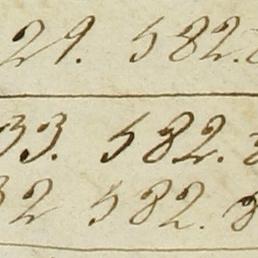 29. 582.
33. 582. 8
32 582. 8